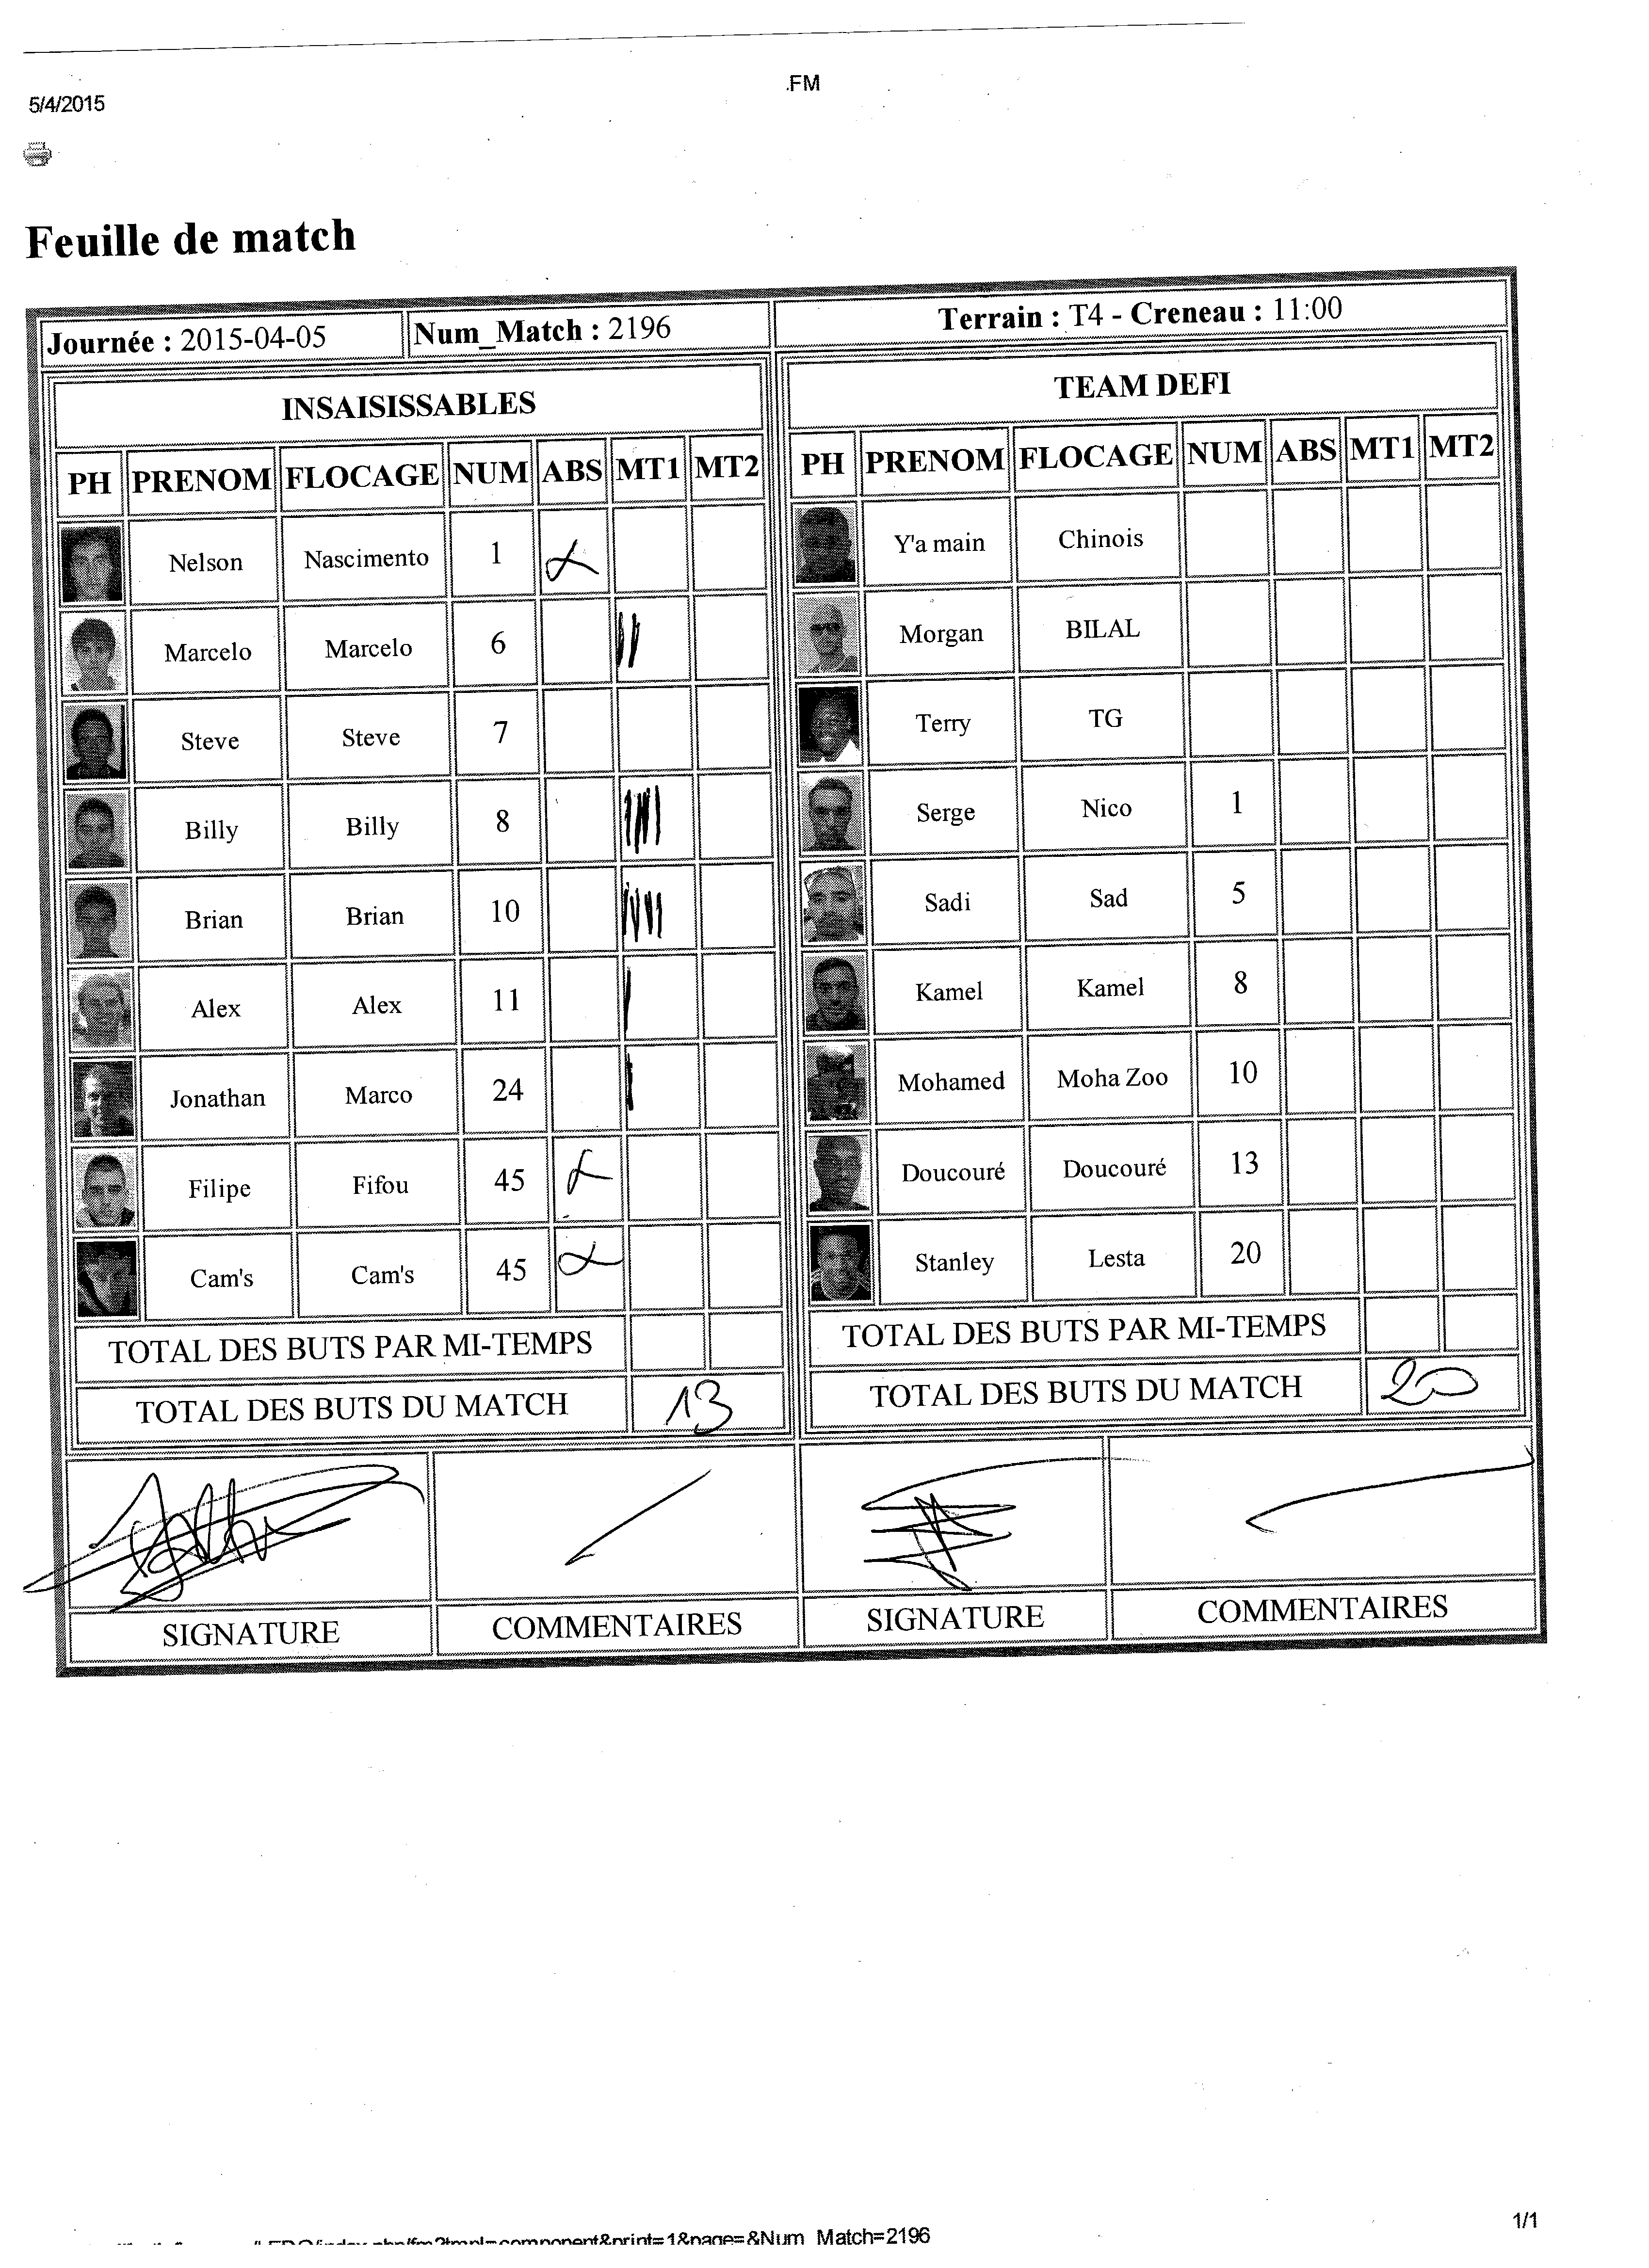 .FM
5/4/2015
Feuille de match
Journée : 2015-04-05 Num_Match : 2196 Terrain : T4 - Creneau : 11:00
INSAISISSABLES
PH PRENOM FLOCAGE NUM ABS MT1 MT2
Nelson Nascimento 1
Marcelo Marcelo 6
Steve Steve 7
Billy Billy 8
Brian Brian 10
Alex Alex 11
Jonathan Marco 24
Filipe Fifou 45
Cam's Cam's 45
TOTAL DES BUTS PAR MI-TEMPS
TOTAL DES BUTS DU MATCH 13
SIGNATURE COMMENTAIRES
TEAM DEFI
PH PRENOM FLOCAGE NUM ABS MT1 MT2
Y'a main Chinois
Morgan BILAL
Terry TG
Serge Nico 1
Sadi Sad 5
Kamel Kamel 8
Mohamed Moha Zoo 10
Doucouré Doucouré 13
Stanley Lesta 20
TOTAL DES BUTS PAR MI-TEMPS
TOTAL DES BUTS DU MATCH 20
SIGNATURE COMMENTAIRES
1/1
component&print=1&page=&Num_Match=2196